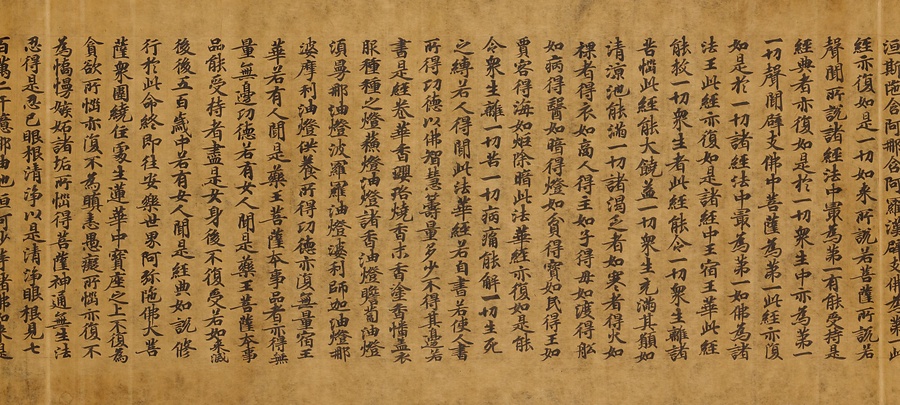 洹斯陁含阿那含阿羅漢辟支佛為第一此
經亦復如是一切如來所說若菩薩所說若
聲聞所說諸經法中最為第一有能受持是
經典者亦復如是於一切衆生中亦為第一
一切聲聞辟支佛中菩薩為第一此經亦復
如是於一切諸經法中最為第一如佛為諸
法王此經亦復如是諸經中王宿王華此經
能救一切衆生者此經能令一切衆生離諸
苦惱此經能大饒益一切衆生充滿其願如
清涼池能滿一切諸渴乏者如寒者得火如
裸者得衣如商人得主如子得母如渡得舩
如病得醫如暗得燈如貧得寶如民得王如
賈客得海如炬除暗此法華經亦復如是能
令衆生離一切苦一切病痛能解一切生死
之縛若人得聞此法華經若自書若使人書
所得功德以佛智慧籌量多少不得其邊若
書是經卷華香瓔珞燒香末香塗香幡盖衣
服種種之燈蘇燈油燈諸香油燈瞻蔔油燈
須曼那油燈波羅羅油燈婆利師迦油燈那
婆摩利油燈供養所得功德亦復無量宿王
華若有人聞是藥王菩薩本事品者亦得無
量無邊功德若有女人聞是藥王菩薩本事
品能受持者盡是女身後不復受若如来滅
後後五百歲中若有女人聞是經典如說修
行於此命終即往安樂世界阿弥陁佛大菩
薩衆圍繞住處生蓮華中寶座之上不復為
貪欲所惱亦復不為瞋恚愚癡所惱亦復不
為憍慢嫉妬諸垢所惱得菩薩神通無生法
忍得是忍已眼根清淨以是清淨眼根見七
百萬二千億那由他恒河沙等諸佛如来是